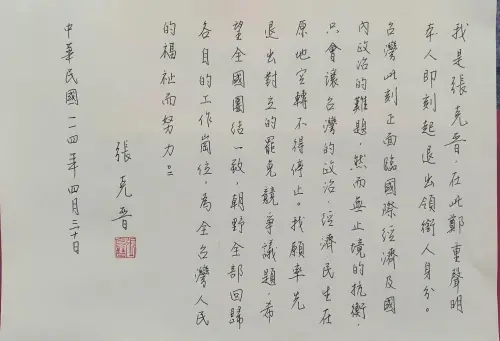 我是張克晉，在此鄭重聲明
本人即刻起退出領銜人身分。
台灣此刻正面臨國際經濟及國
內政治的難題，然而無止境的抗衡，
只會讓台灣的政治、經濟民生在
原地空轉不得停止。我願率先
退出對立的罷免競爭議題，希
望全國團結一致，朝野全部回歸
各自的工作崗位，為全台灣人民
的福祉而努力。
張克晉
中華民國一一四年四月三十日